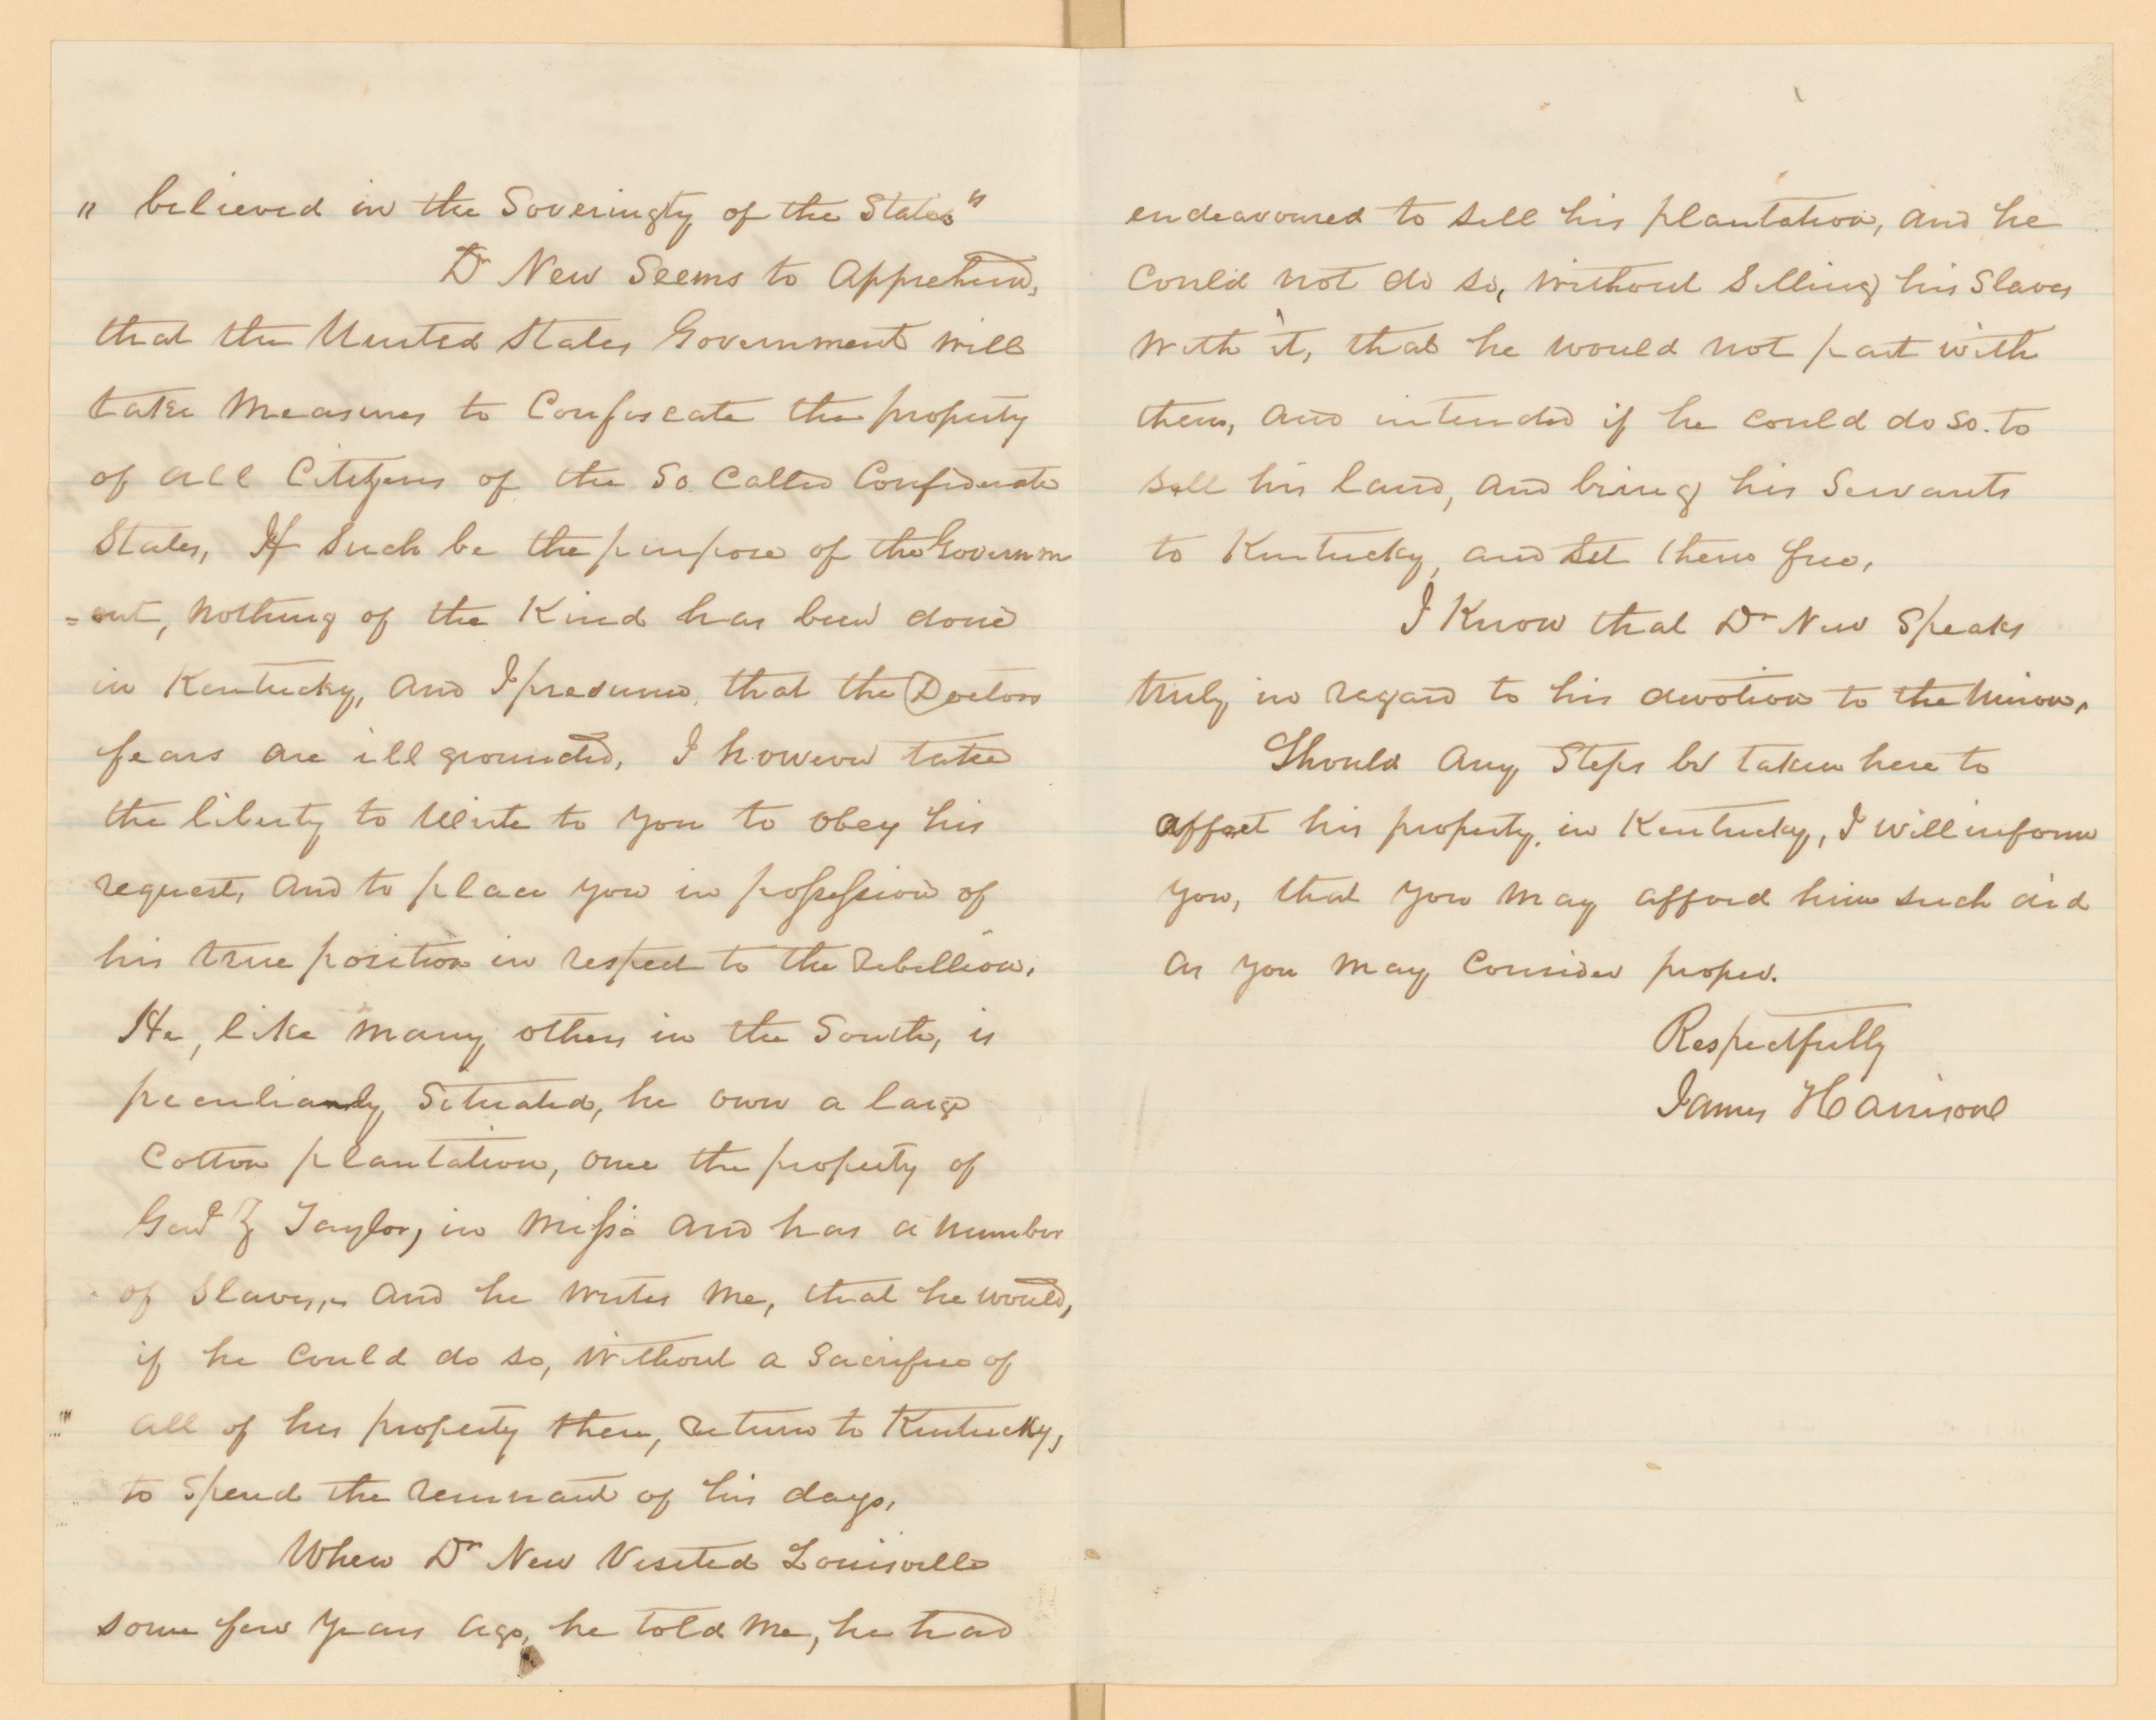 " believed in the Soveringty of the States"
Dr New Seems to Apprehend,
that the United States Government will
take measures to Confiscate the property
of all Citizens of the So Called Confederate
States, If Such be the purpose of the Governm
=ent, nothing of the Kind has been done
in Kentucky, and I presume that the Doctors
fears are ill grounded, I however take
the liberty to Write to you to obey his
request, and to place you in possession of
his true position in respect to the rebellion.
He, like many others in the South, is
peculiarly Situated, he own a large
Cotton plantation, once the property of
Genl Z Taylor, in Missi and has a number
of Slaves, and he writes me, that he would,
if he could do so, without a Sacrifice of
all of his property there, return to Kentucky,
to spend the remnant of his days,
When Dr New Visited Louisville
some few years ago, he told me, he had
endeavoured to sell his plantation, and he
could not do so, without Selling his Slaves
with it, that he would not part with
them, and intended if he could do so. to
sell his land, and bring his Servants
to Kentucky, and set them free,
I Know that Dr New Speaks
truly in regard to his devotion to the Union,
Should any Steps be taken here to
affect his property, in Kentucky, I will inform
you, that you may afford him such aid
as you may Consider proper.
Respectfully
James Harrison